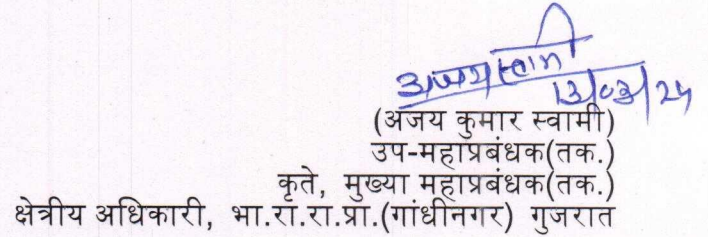 अजय स्वामी
13/03/24
(अजय कुमार स्वामी)
उप-महाप्रबंधक(तक.)
कृते, मुख्या महाप्रबंधक(तक.)
क्षेत्रीय अधिकारी, भा.रा.रा.प्रा.(गांधीनगर) गुजरात